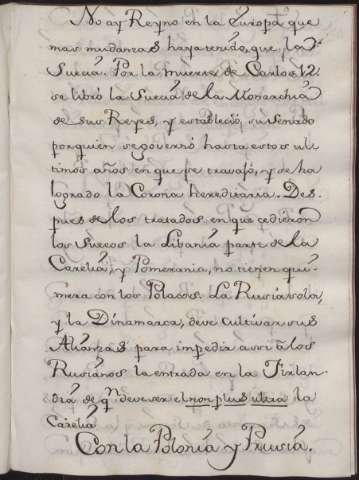 No ay Reyno en la Europa que
mas mudanzas haya tenido, que la
Suecia. Por la muerte de Carlos 12.
se libró la Suecia de la Monarchia
de sus Reyes, y estableció su Senado
por quien se governó hasta estos ul-
timos años en que se travajó, y se ha
logrado la Corona hereditaria. Des-
pues de los tratados en que cedieron
los Suecos la Libania parte de la
Carelia, y Pomerania, no tienen qui-
mera con los Polacos. La Rusia sola,
y la Dinamarca, deve cultivar sus
Alianzas para impedir assi a los
Rusianos la entrada en la Finlan-
dia de qn. deve ser el non plus ultra la
Carelia
Con la Polonia y Prusia.